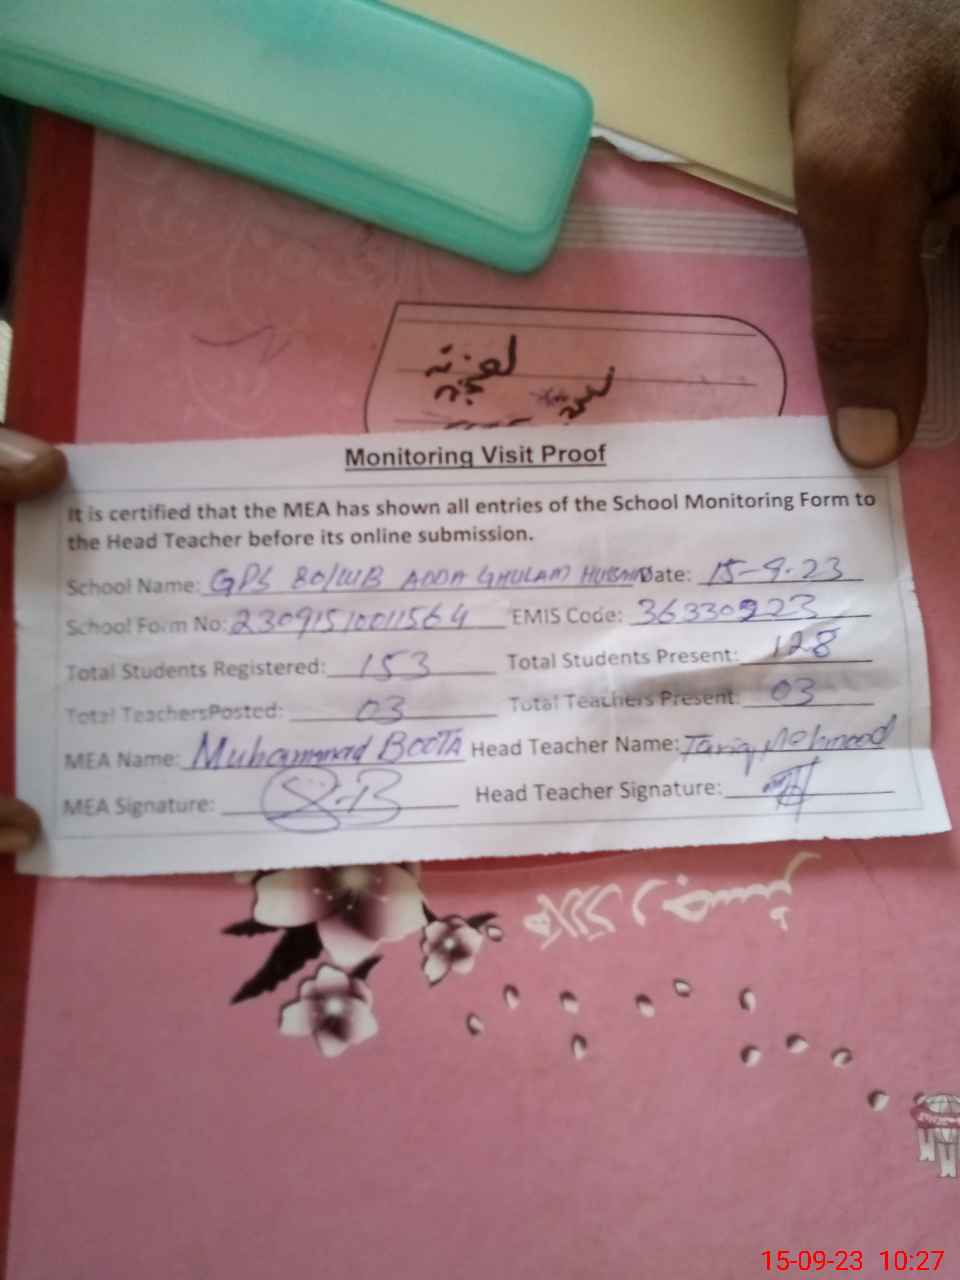 Monitoring Visit Proof
It is certified that the MEA has shown all entries of the School Monitoring Form to
the Head Teacher before its online submission.
School Name: GPS 80/WB ADDA GHULAM HUSSAIN Date: 15-9-23
School Form No: 2309151001564 EMIS Code: 36330923
Total Students Registered: 153 Total Students Present: 128
Total TeachersPosted: 03 Total Teachers Present: 03
MEA Name: Muhammad BOOTA Head Teacher Name: Tariq Mehmood
MEA Signature: Head Teacher Signature:
15-09-23 10:27